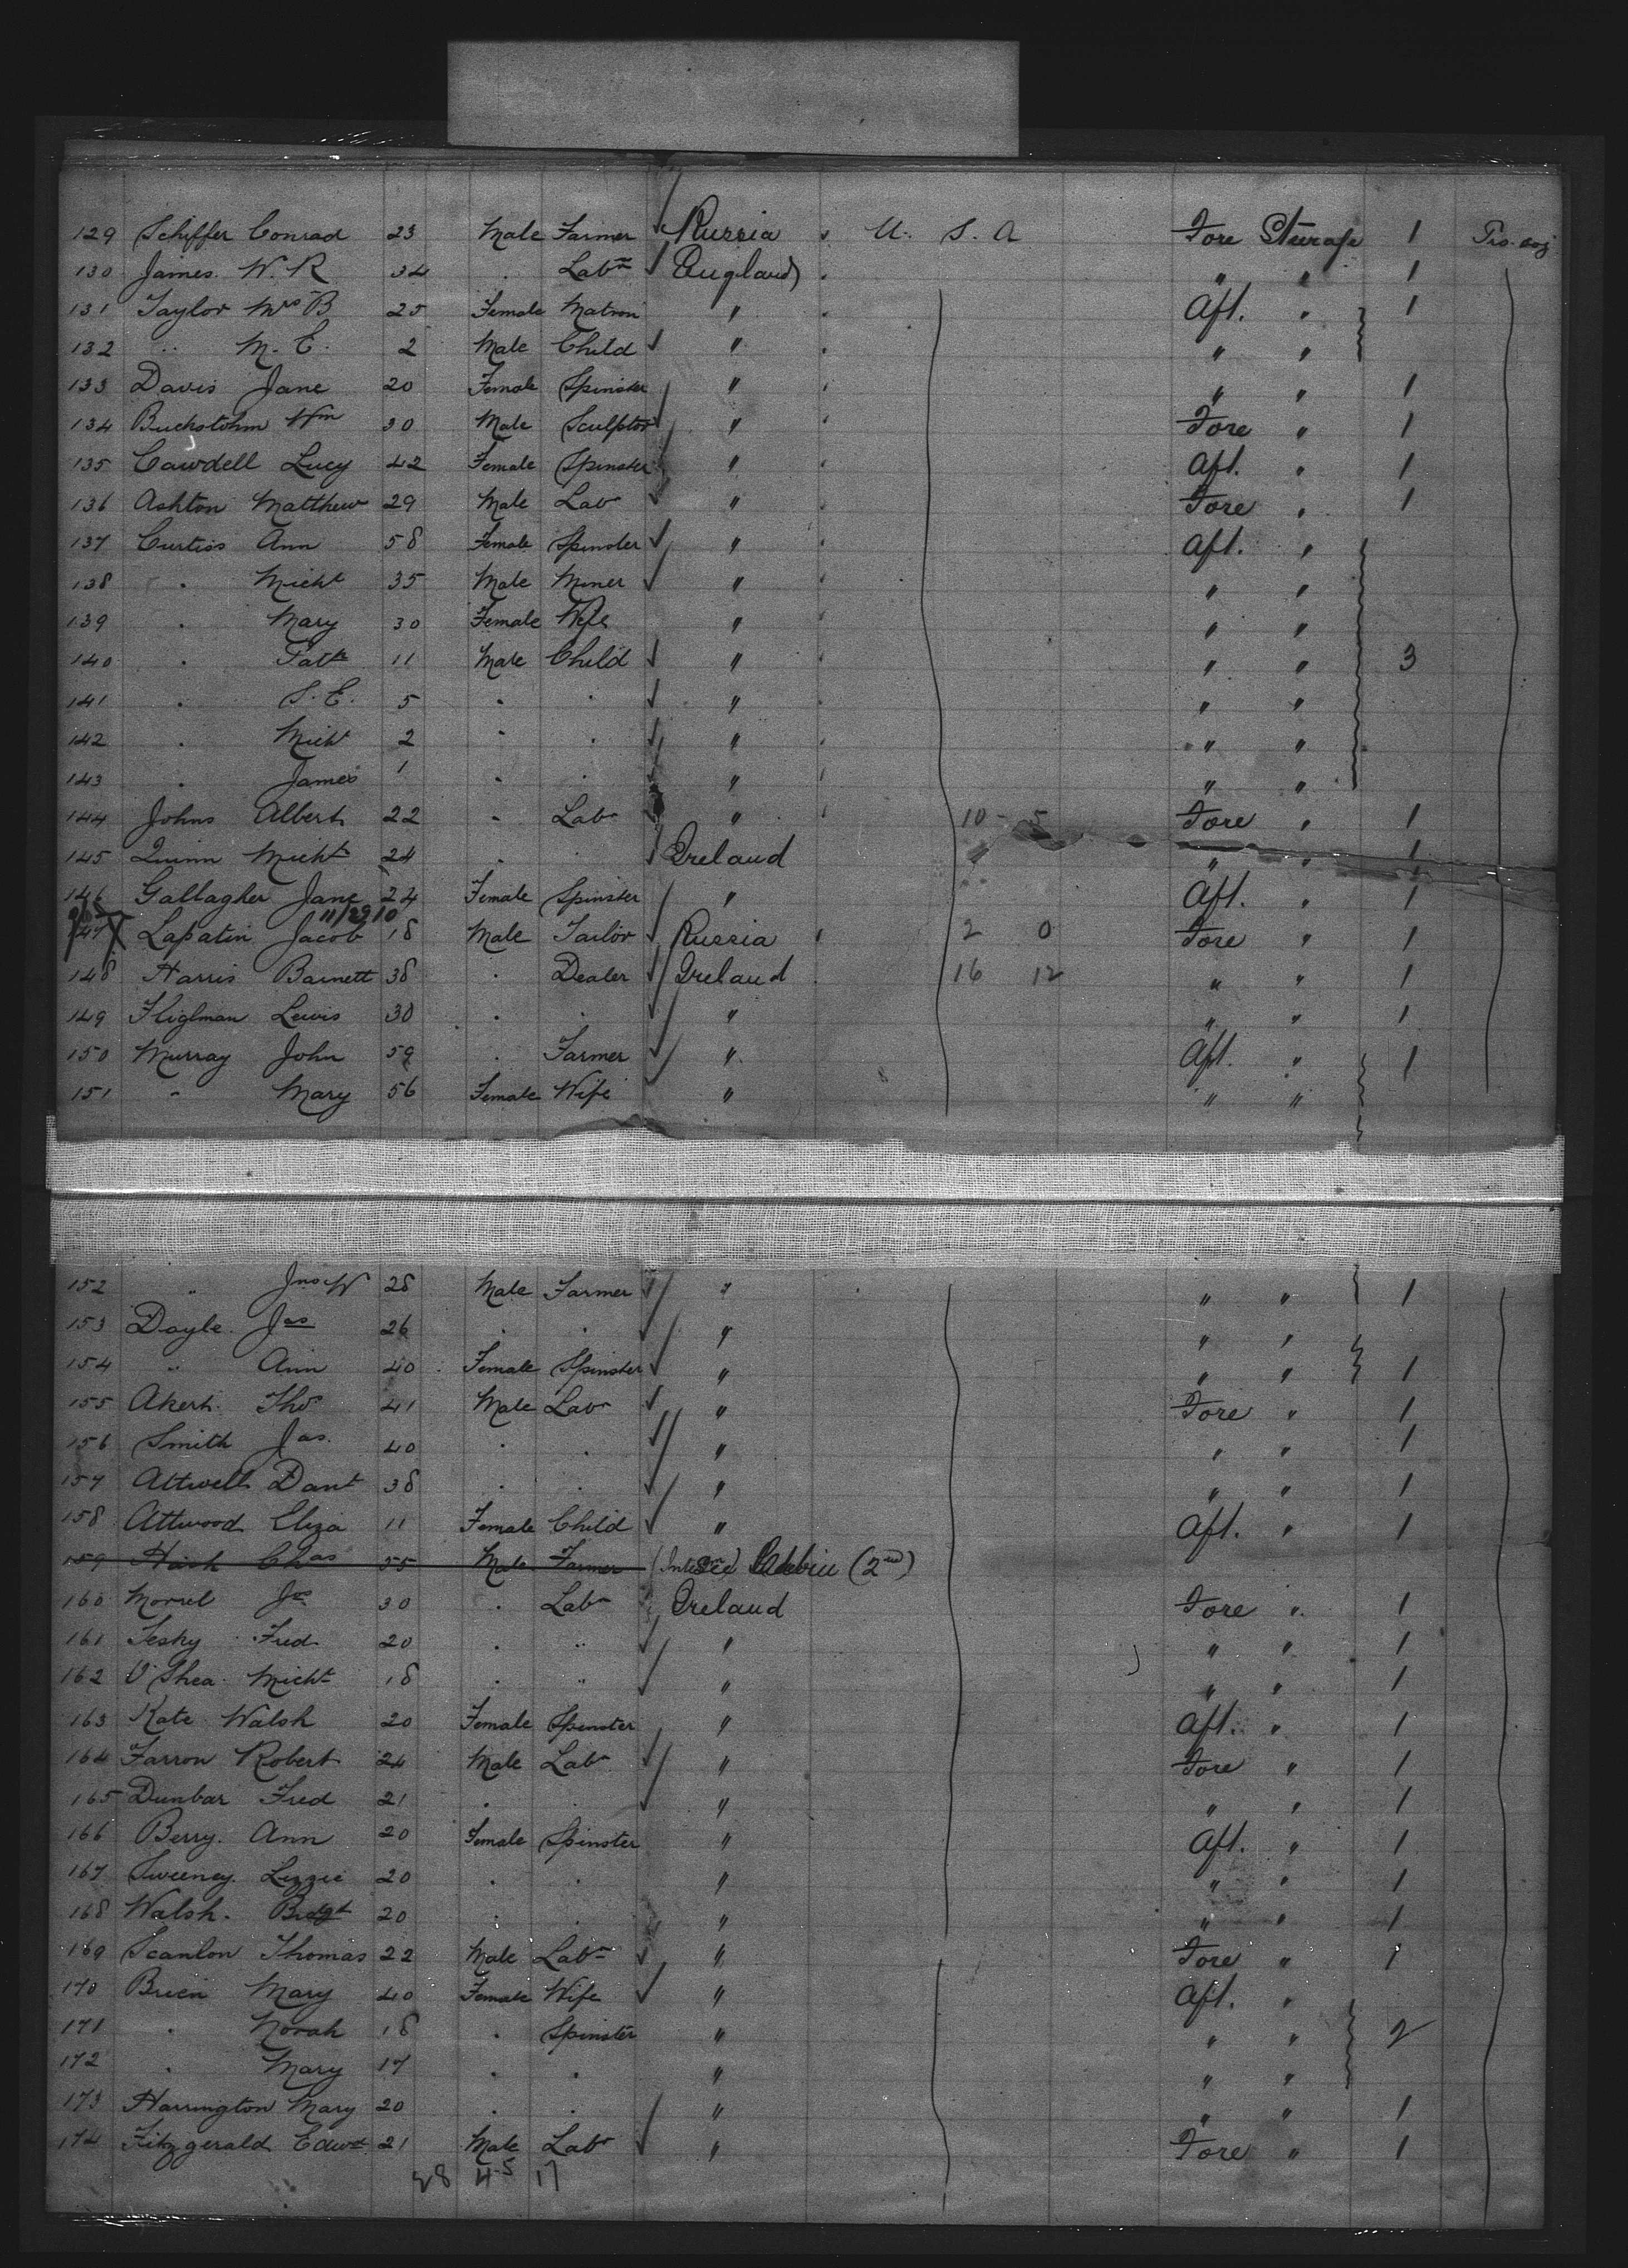 129 Schiffer Conrad 23 Male Farmer Russia U. S. A Fore Steerage 1
130 James. W. R 34 . Labr England . " " 1
131 Taylor Mrs B 25 Female Matron " Aft. " 1
132 " M. E. 2 Male Child " " "
133 Davis Jane 20 Female Spinster " " " 1
134 Buckstohm Wm 30 Male Sculptor " Fore " 1
135 Cawdell Lucy 42 Female Spinster " Aft. " 1
136 Ashton Matthew 29 Male Labr " Fore " 1
137 Curtiss Ann 58 Female Spinster " Aft. "
138 " Michl 35 Male Miner " " "
139 " Mary 30 Female Wife " " "
140 " Patk 11 Male Child " " " 3
141 " S. E. 5 " " " " "
142 " Michl 2 " " " " "
143 " James 1 " " " " "
144 Johns Albert 22 " Labr " 10 - 5 Fore " 1
145 Quinn Michl 24 " " Ireland " " 1
146 Gallagher Jane 24 Female Spinster " Aft. " 1
11/29/10
147 Lapatin Jacob 18 Male Tailor Russia 2 0 Fore " 1
148 Harris Barnett 38 " Dealer Ireland 16 12 " " 1
149 Fliglman Lewis 30 " " " " " 1
150 Murray John 59 " Farmer " Aft. " 1
151 " Mary 56 Female Wife " " "
152 " Jno W 28 Male Farmer " " " 1
153 Doyle. Jas 26 " " " " "
154 " Ann 40 Female Spinster " " " 1
155 Akert. Thos 41 Male Labr " Fore " 1
156 Smith Jas. 40 " " " " " 1
157 Attwell Danl 38 " " " " " 1
158 Attwood Eliza 11 Female Child " Aft. " 1
159 Chas 55 Male Farmer (2nd)
160 Morrel Jas 30 " Labr Ireland Fore " 1
161 Tesky Fred. 20 " " " " " 1
162 O'Shea Michl 18 " " " " " 1
163 Kate Walsh 20 Female Spinster " Aft. " 1
164 Farron Robert 24 Male Labr " Fore " 1
165 Dunbar Fred 21 " " " " " 1
166 Berry. Ann 20 Female Spinster " Aft. " 1
167 Sweeney. Lizzie 20 " " " " " 1
168 Walsh. Bridgt 20 " " " " " 1
169 Scanlon Thomas 22 Male Labr " Fore " 1
170 Brien Mary 40 Female Wife " Aft. "
171 " Norah 18 " Spinster " " " 2
172 " Mary 17 " " " " "
173 Harrington Mary 20 " " " " " 1
174 Fitzgerald Edwd 21 Male Labr " Fore " 1
28 45 17